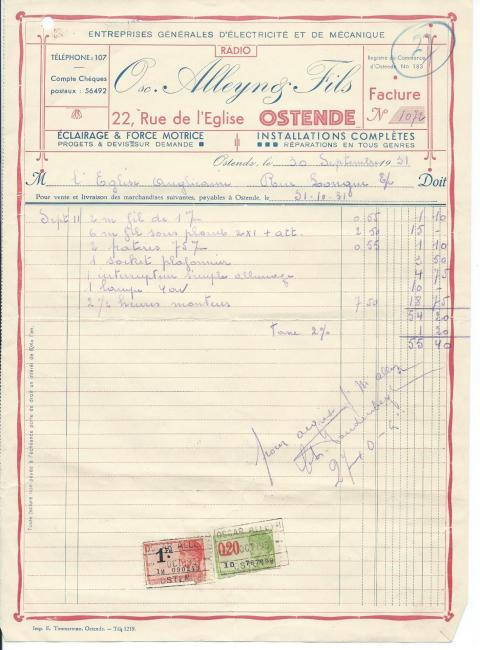 27
ENTREPRISES GÉNÉRALES D'ÉLECTRICITÉ ET DE MÉCANIQUE
RADIO
TÉLÉPHONE: 107
Compte Chéques
postaux: 56492
Osc. Alleyn & Fils
Registre du Commerce
d'Ostende, No 183
Facture
No 1072
22, Rue de l'Eglise OSTENDE
ÉCLAIRAGE & FORCE MOTRICE
PROGETS & DEVIS SUR DEMANDE
INSTALLATIONS COMPLÈTES
RÉPARATIONS EN TOUS GENRES
Ostende, le 30 Septembre 1931
M l'Eglise anglicaine Rue Longue E/V Doit
Pour vente et livraison des marchandises suivantes, payables à Ostende, le 31.10.31
Sept 11 2 m fil de 17 0 55 1 10
6 m fil sous plomb 2x1 + att. 2 50 15 -
2 patères 757 0 55 1 10
1 socket plafonnier 3 50
1 interrupteur simple allumage 4 75
1 lampe 40v 10 -
2 1/2 heures monteurs 7 50 18 75
54 20
taxe 2% 1 20
55 40
pour acquit
Toute facture non payée à l'échéance porte de droit un intérêt de 6% l'an.
OSCAR ALLEYN
1 Fr
OCT
OSTEN
OSCAR ALLEYN
0.20
OCT
Imp. E. Timmerman, Ostende. — Tél. 1219.